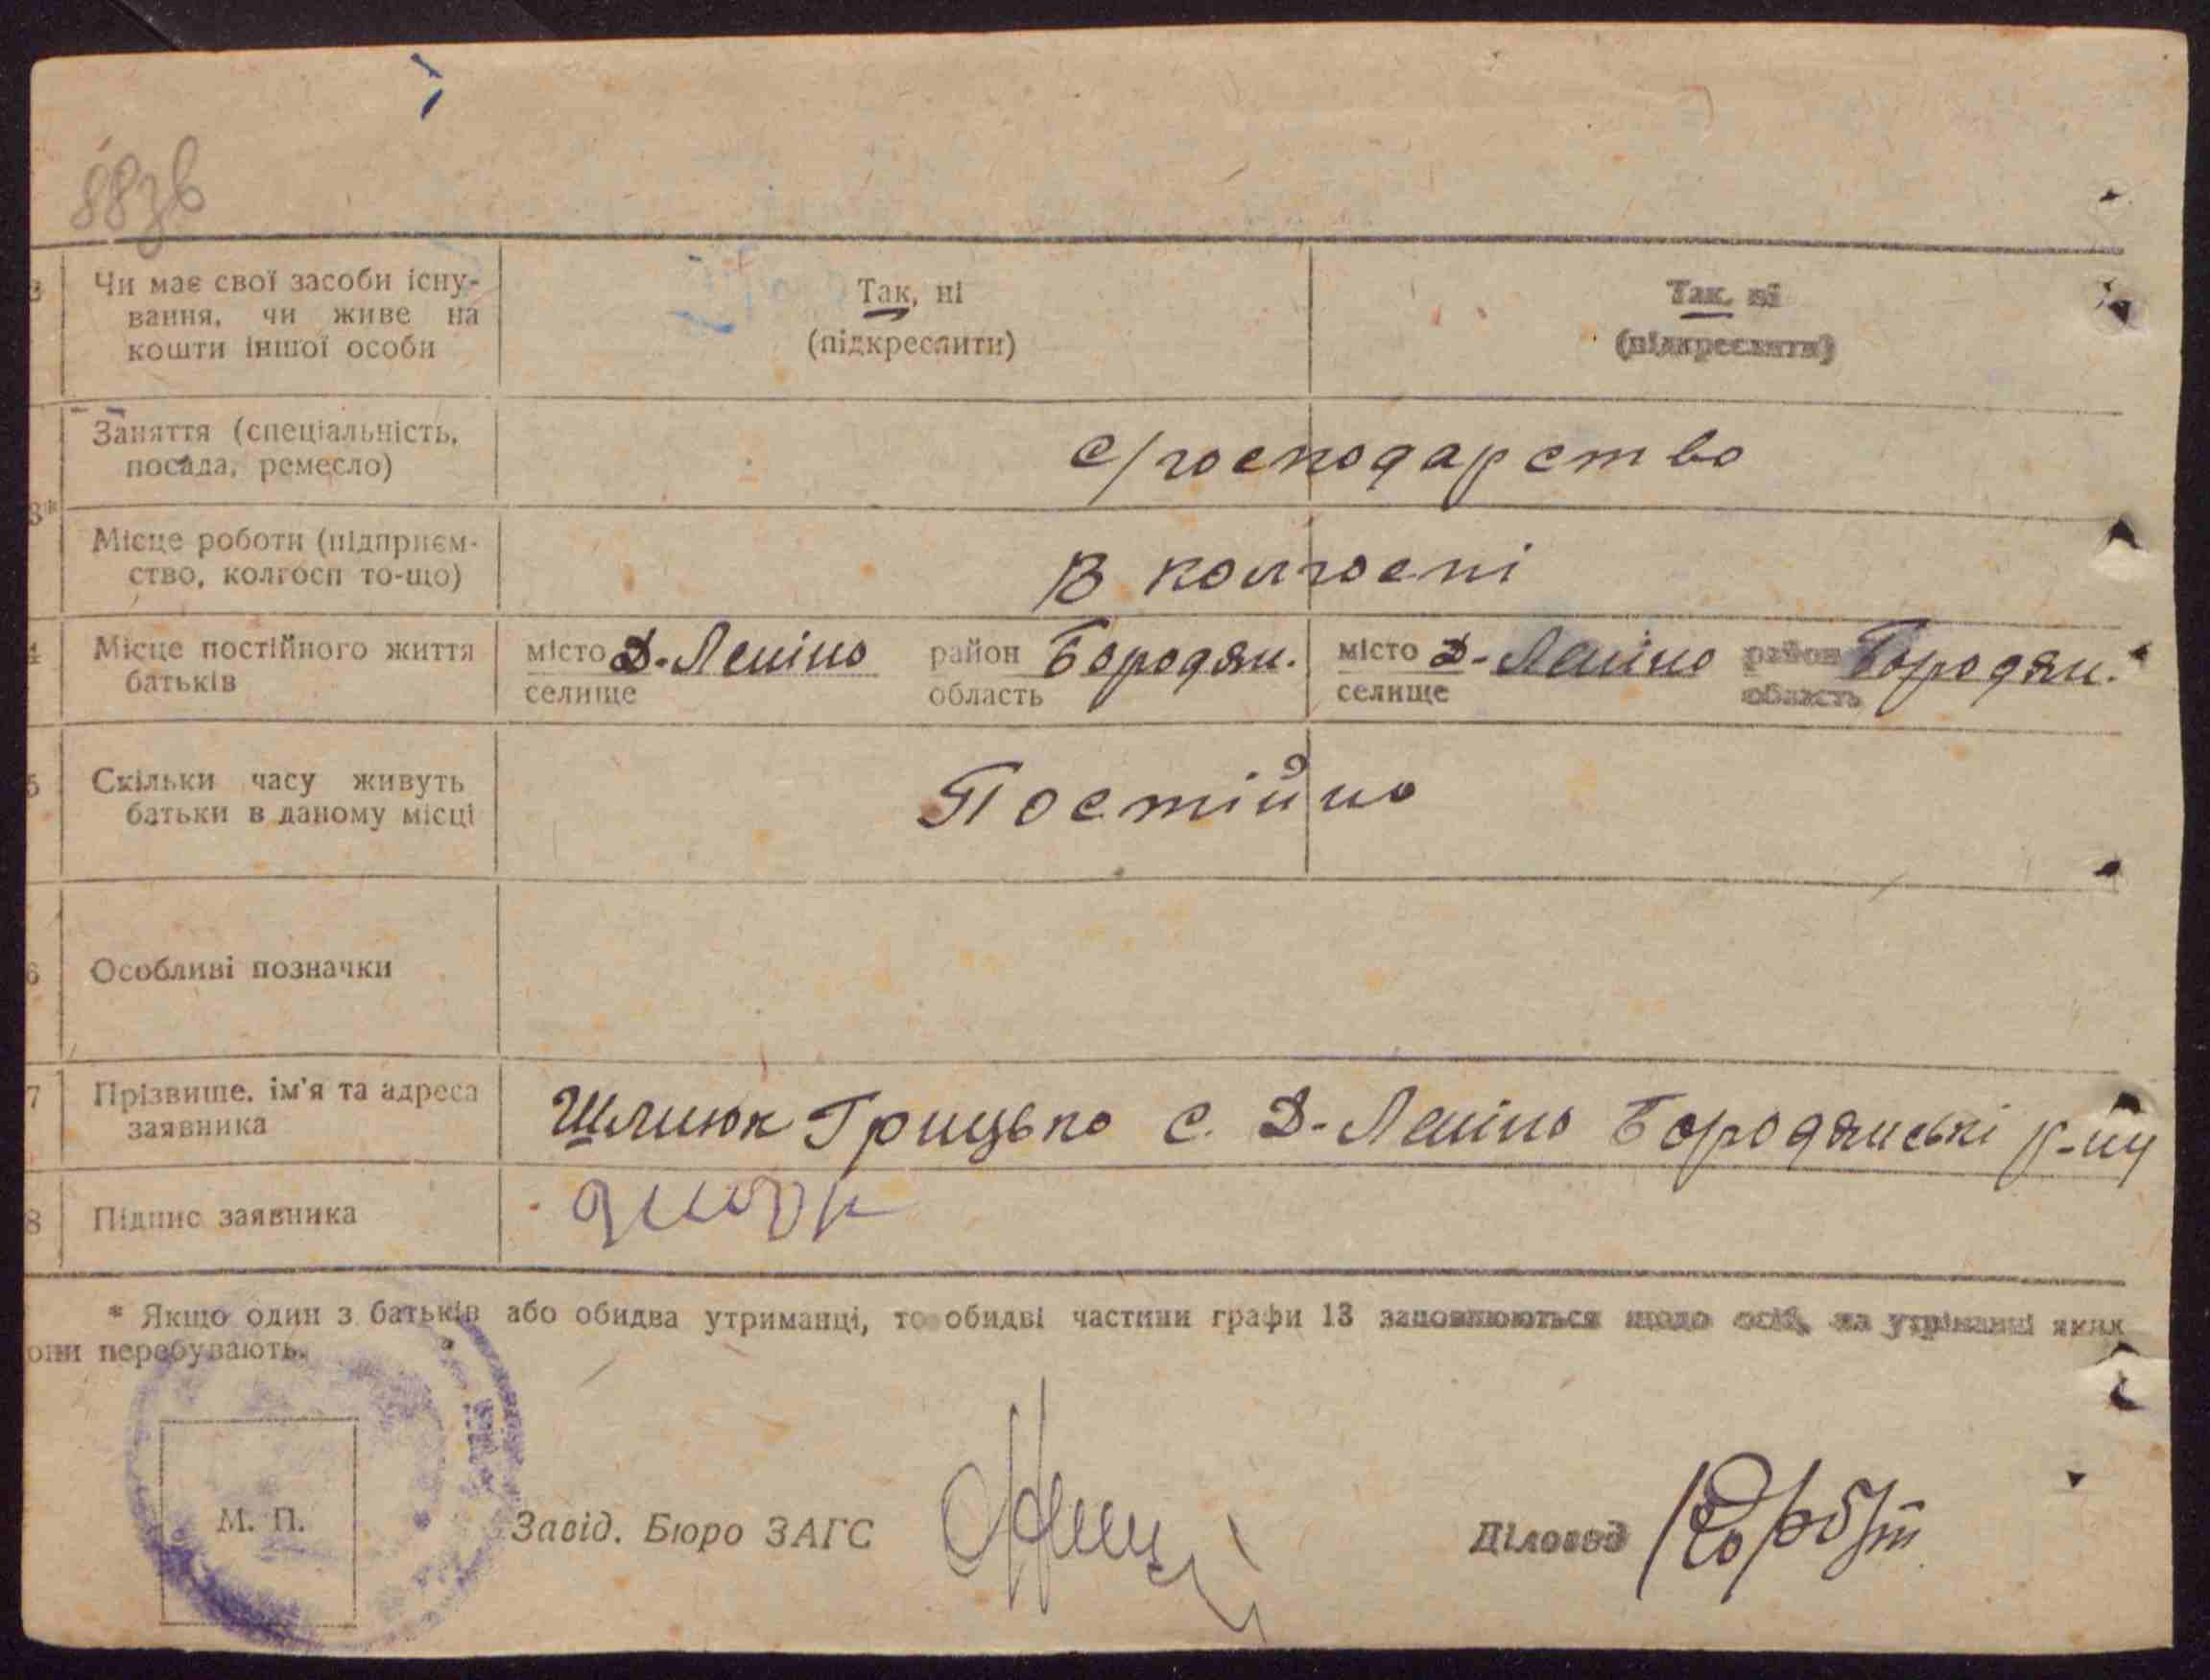 88зв
Чи має свої засоби існу-
вання, чи живе на
кошти іншої особи
Так, ні
(підкреслити)
Так, ні
(підкреслити)
Заняття (спеціальність,
посада, ремесло)
с/господарство
3*
Місце роботи (підприєм-
ство, колгосп то-що)
В колгоспі
4
Місце постійного життя
батьків
місто Д-Леніно район Бородян.
селище область
місто Д-Леніно район Бородян.
селище область
5
Скільки часу живуть
батьки в даному місці
Постійно
6
Особливі позначки
7
Прізвище, ім'я та адреса
заявника
Шлинюк Грицько с. Д-Леніно Бородянські р-ну
8
Підпис заявника
* Якщо один з батьків або обидва утриманці, то обидві частини графи 13 заповнюються щодо осіб, на утриманні яких
они перебувають.
М. П.
Завід. Бюро ЗАГС
Діловод